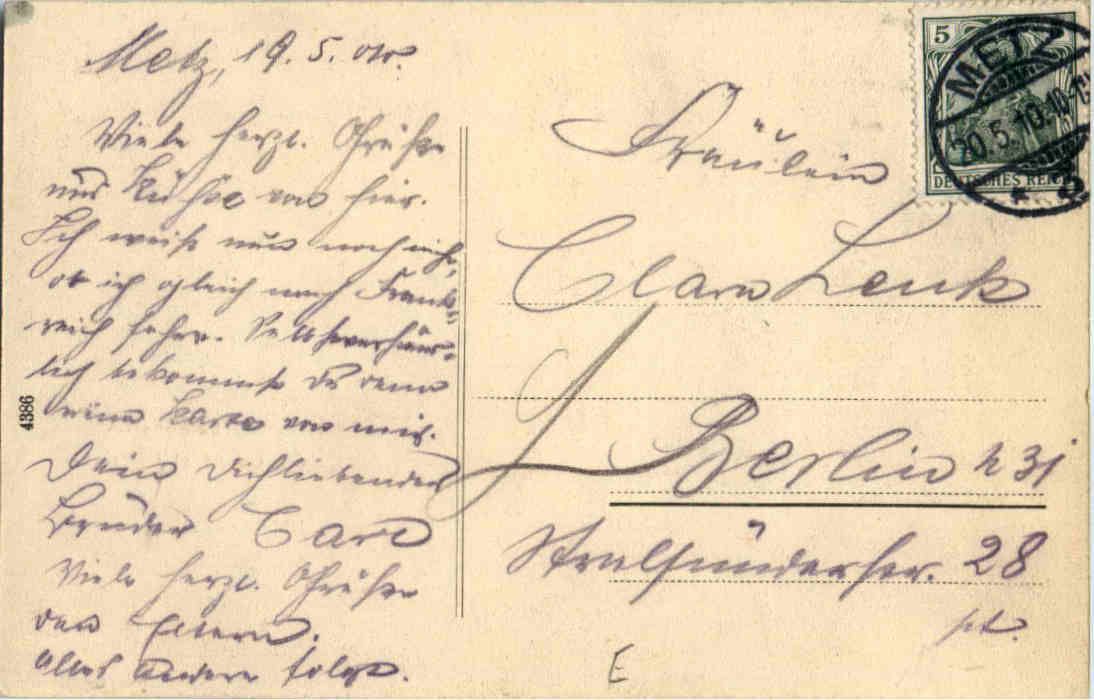 Metz, 19. 5.
Viele herzl. Grüße
und Küsse von hier.
Ich weiß nun noch nicht,
ob ich gleich nach Frank-
reich fahre. Selbstverständ-
lich bekommst du dann
eine Karte von mir.
Dein dichliebender
Bruder Carl
Viele herzl. Grüße
den Eltern.
Alles andere folgt.
4386
5
DEUTSCHES REICH
METZ
20.5.10.10-11V
* 2
Fräulein
Clara Lenk
Berlin N 31
Stralsunderstr. 28
pt.
E